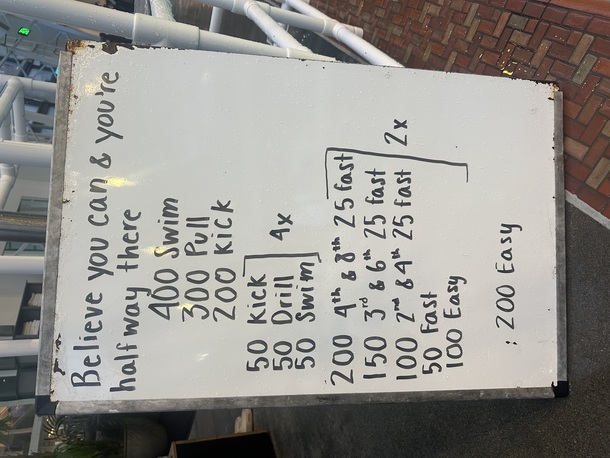 Believe you can & you're
halfway there
400 Swim
300 Pull
200 Kick
50 Kick
50 Drill 4x
50 Swim
200 4th & 8th 25 fast
150 3rd & 6th 25 fast 2x
100 2nd & 4th 25 fast
50 Fast
100 Easy
: 200 Easy